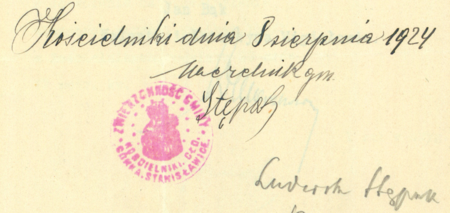 Kościelniki dnia 8 sierpnia 1924
Naczelnik gm.
Stępak
ZWIERZCHNOŚĆ GMINY
KOŚCIELNIKI, CŁO,
GÓRKA, STANISŁAWICE.
Ludwik Stępak